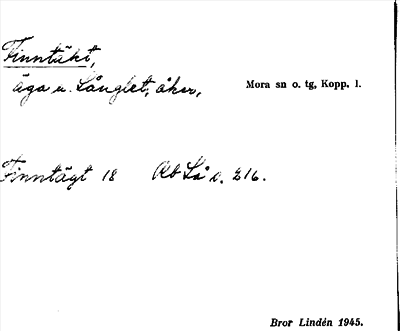 Finntäkt,
äga u. Långlet, åker,
Mora sn o. tg, Kopp. l.
Finntägt 18 Ab Lå s. 216.
Bror Lindén 1945.